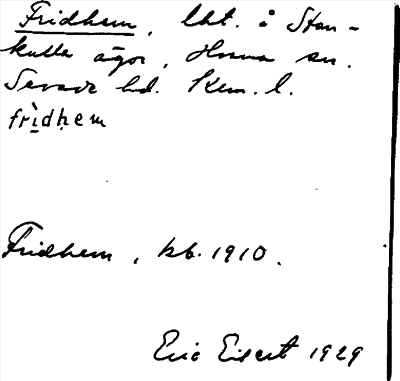 Fridhem, lht. å Sten-
kulla ägor, Hossna sn.
 hd. l.
frìdhem
Fridhem, kb. 1910.
Eric Eisert 1929